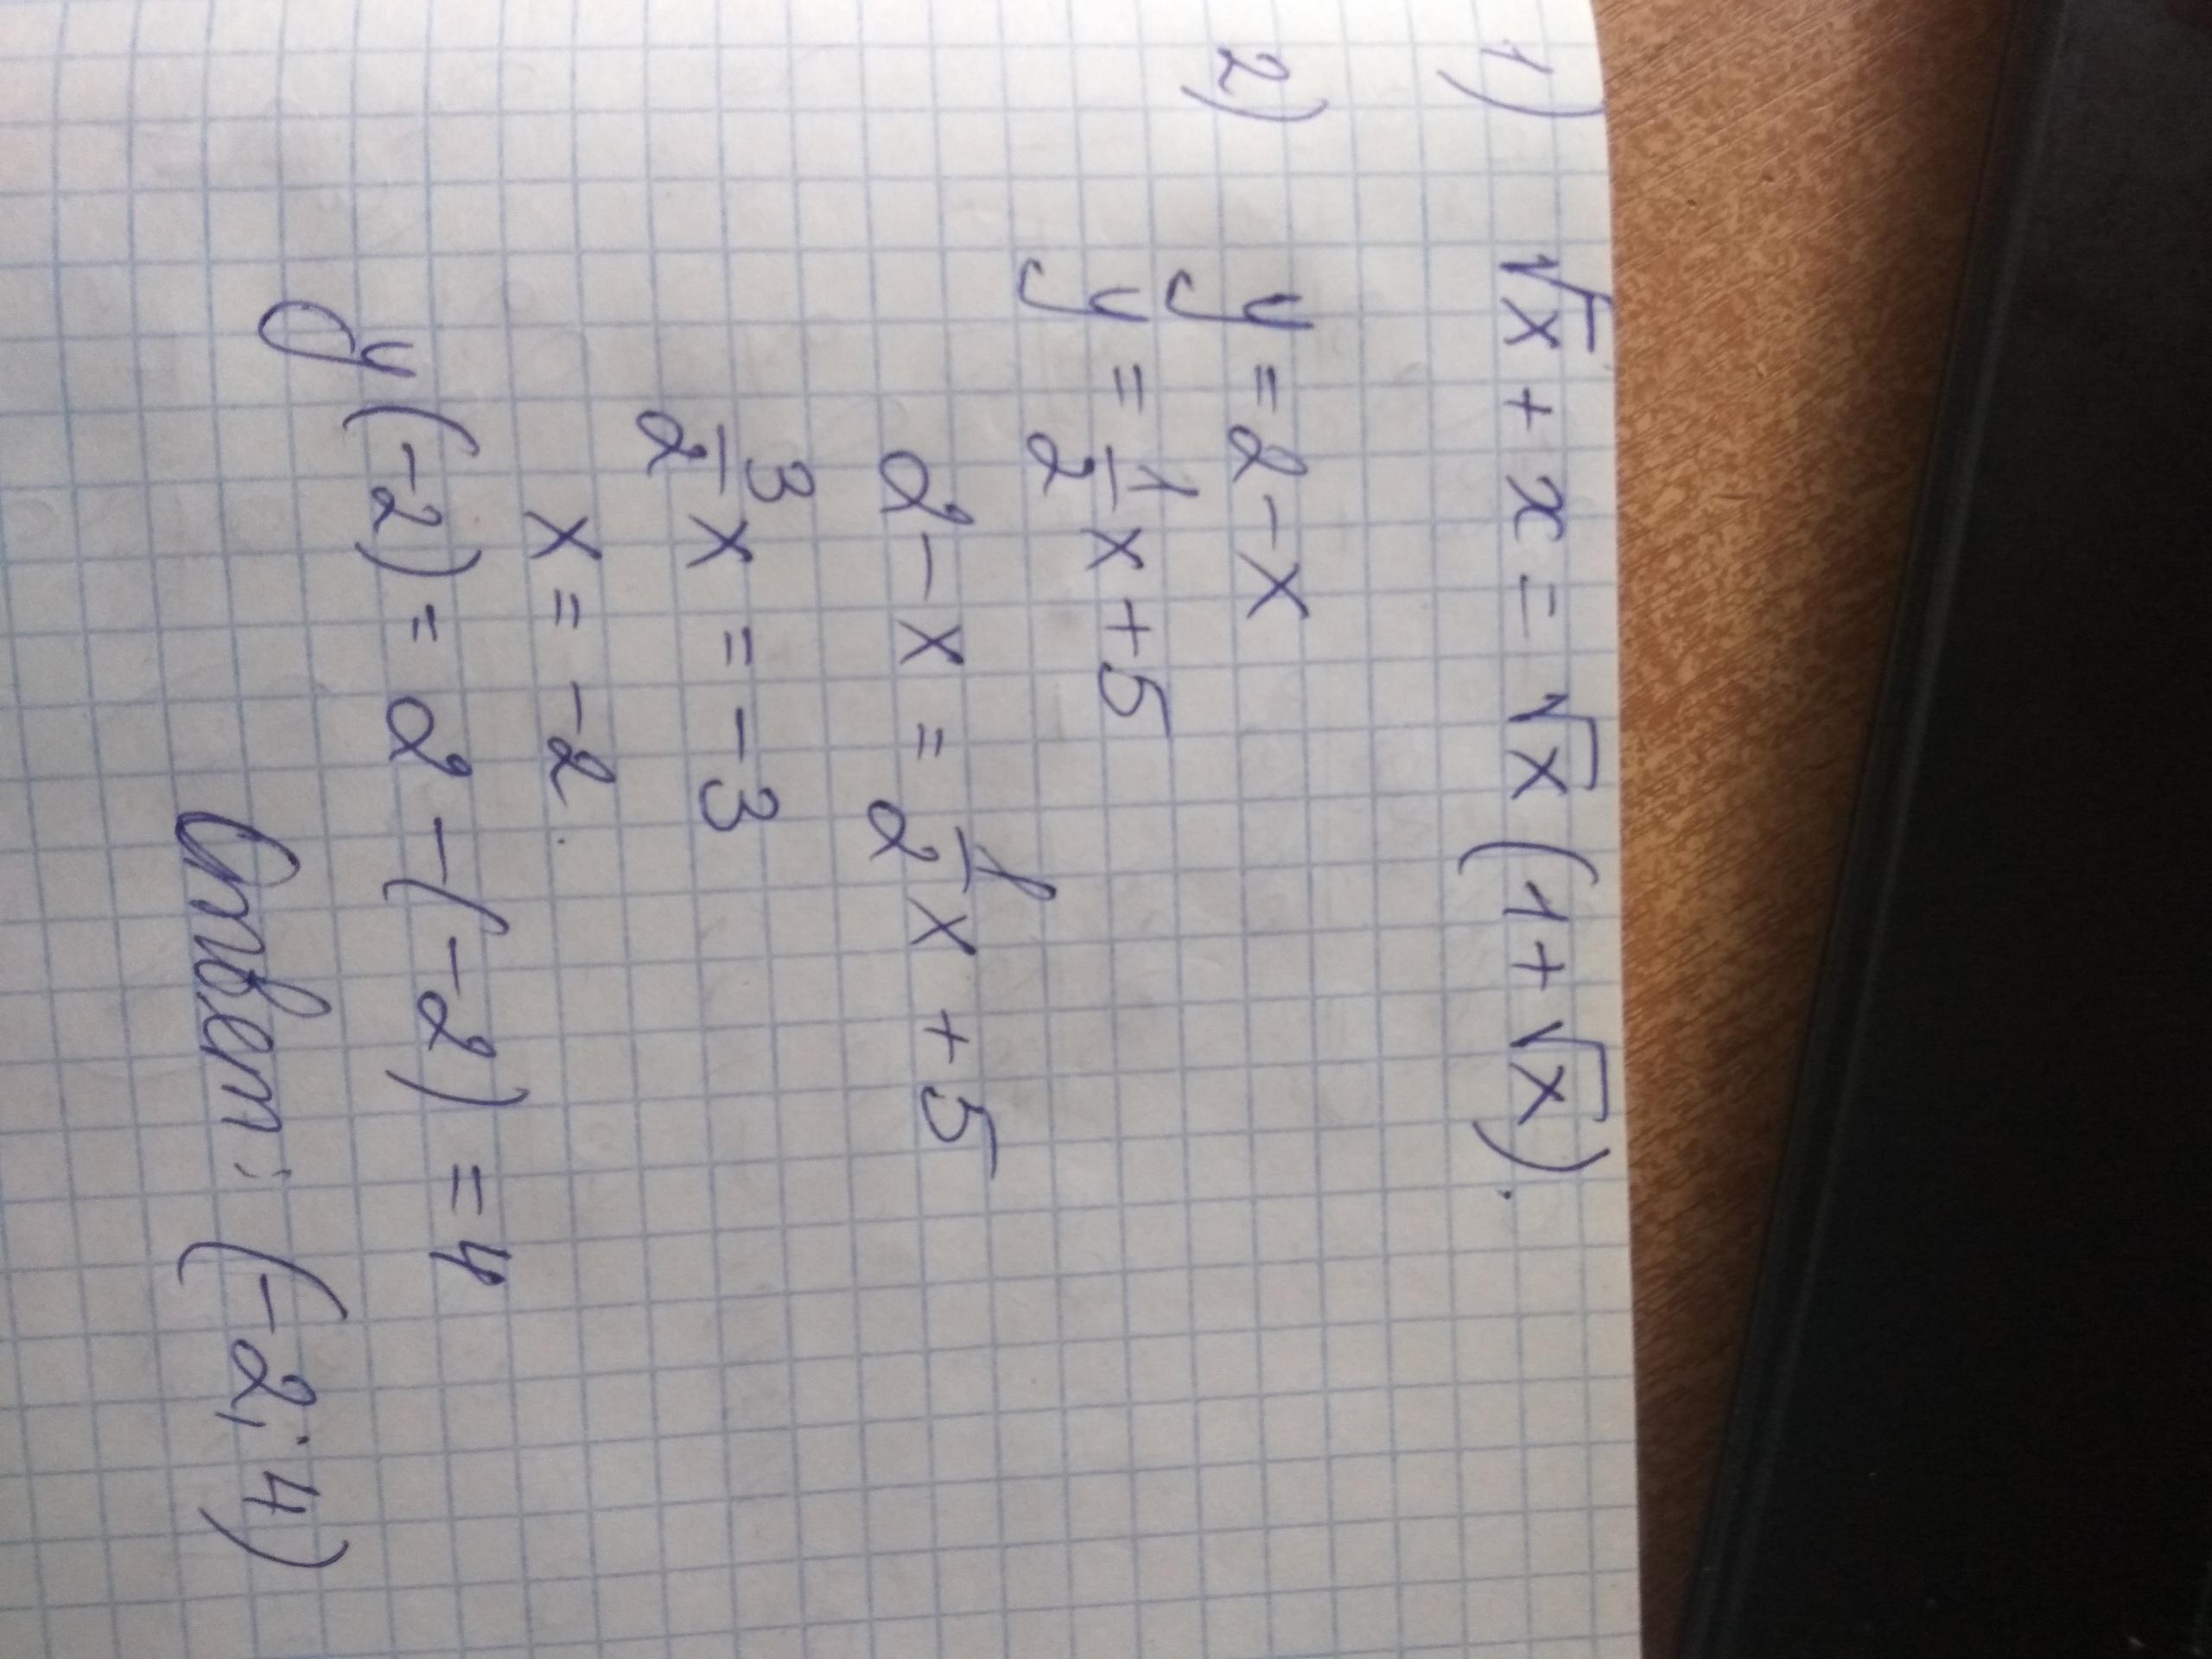 1) √x + x = √x (1 + √x).
2) y = 2 - x
y = 1/2 x + 5
2 - x = 1/2 x + 5
3/2 x = -3
x = -2.
y(-2) = 2 - (-2) = 4
Ответ: (-2; 4)